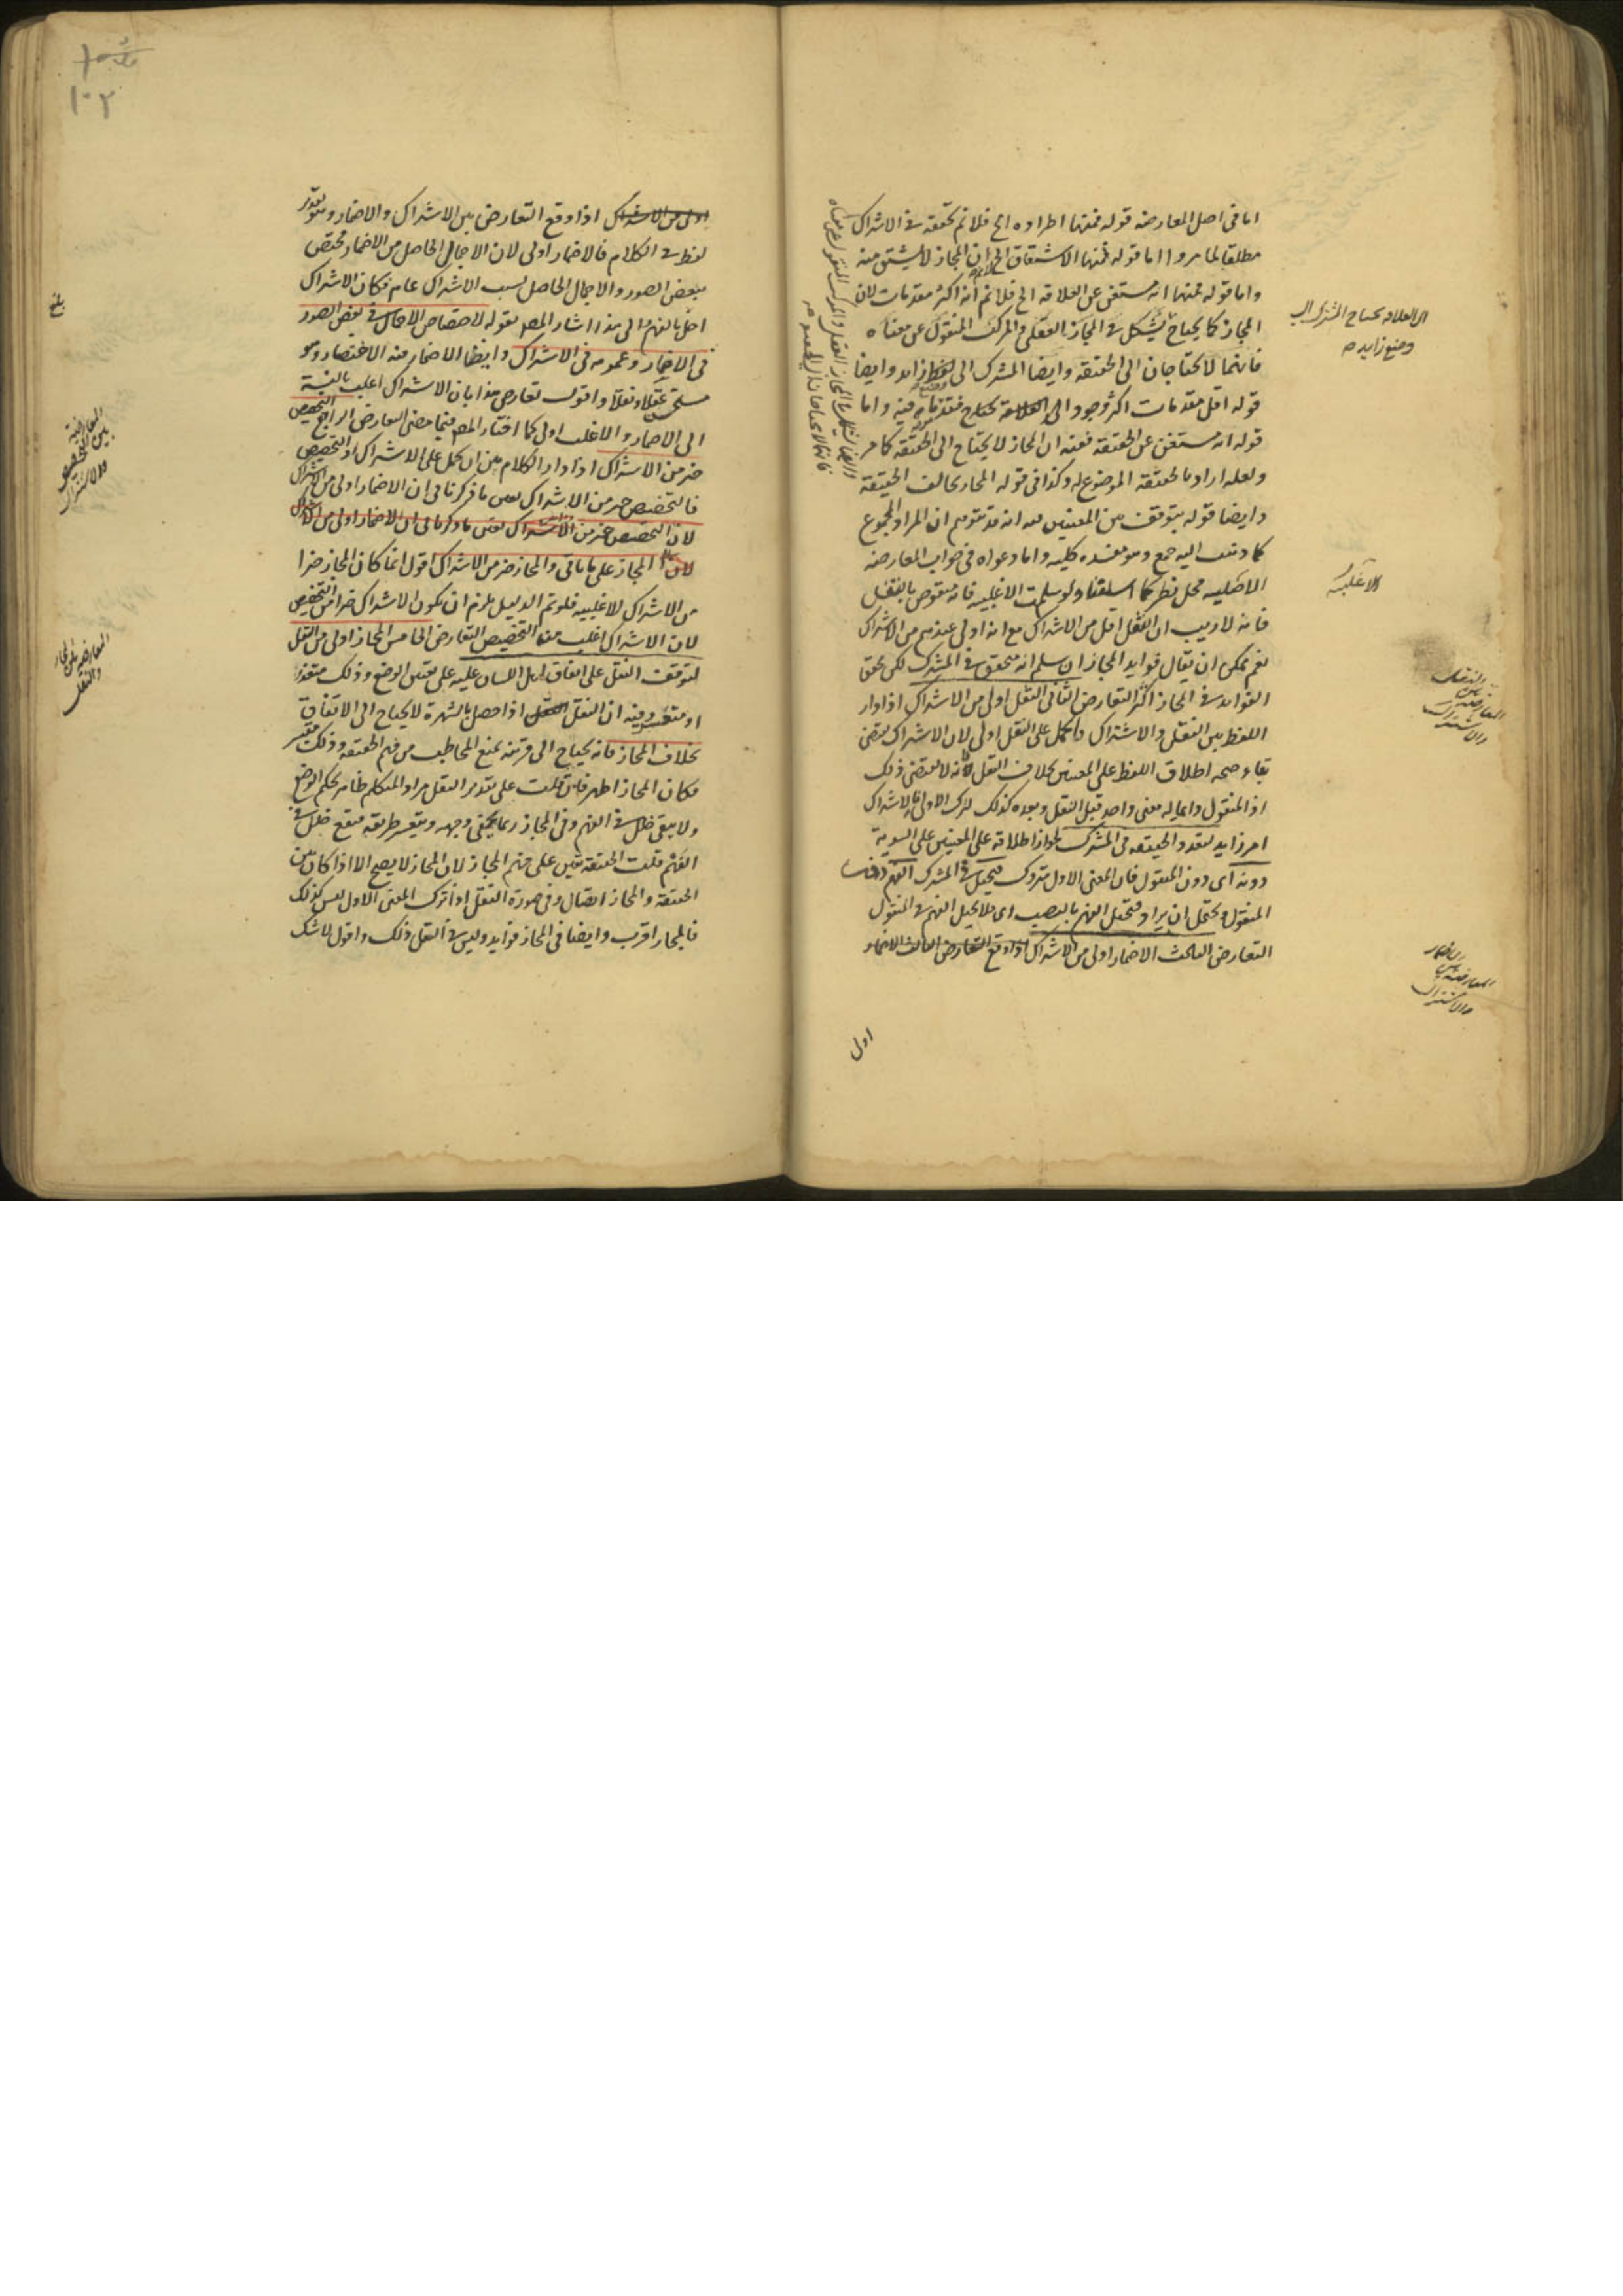 اما فى اصل المعارضه قوله فمنها اطراده الخ فلا نم تحققه فى الاشتراك
مطلقا لما مر واما قوله فمنها الاشتقاق الخ لان المجاز لا يشتق منه
واما قوله فمنها انه مستغن عن العلاقه الخ فلا نم انه اكثر مقدمات لان
المجاز كما يحتاج يشكل فى المجاز العقلى والمركب المنقول عن معناه
فانهما لا يحتاجان الى الحقيقه وايضا المشترك الى وضع زايد وايضا
قوله اقل مقدمات اكثر وجود الى العلاقة يحتاج فيه واما
قوله انه مستغن عن الحقيقه ففيه ان المجاز لا يحتاج الى الحقيقه كما مر
ولعله اراد بالحقيقه الموضوع له وكذا فى قوله المجاز يخالف الحقيقة
وايضا قوله يتوقف من المعنيين فيه انه قد يتوهم ان المراد المجموع
كما ذهب اليه جمع وهو مفسده كليه واما دعواه فى جواب المعارضه
الاغلبيه محل نظر كما اسلفنا ولو سلمت الاغلبيه فانه منقوض بالنقل
فانه لا ريب ان النقل اقل من الاشتراك مع انه اولى عندهم من الاشتراك
نعم يمكن ان يقال فوايد المجاز ان سلم انه متحقق فى المشترك لكن تحقق
الفوايد فى المجاز اكثر التعارض الثانى النقل اولى من الاشتراك اذا دار
اللفظ بين النقل والاشتراك فالحمل على النقل اولى لان الاشتراك يقتضى
بقاء صحه اطلاق اللفظ على المعنيين بخلاف النقل فانه لا يقتضى ذلك
اذ المنقول دايما له معنى واحد قبل النقل وبعده كذلك لترك الاول فالاشتراك
امر زايد لتعدد الحقيقه فى المشترك لجواز اطلاقه على المعنيين على السوية
دونه اى دون المنقول فان المعنى الاول متروك فيختل فى المشترك الفهم دون
المنقول ويحتمل ان يراد فيختل الفهم بالنصب اى فلا يختل الفهم فى المنقول
التعارض الثالث الاضمار اولى من الاشتراك اذا وقع التعارض الثالث الاضمار
اولى
الى العلاقه يحتاج المشترك الى
وضع زايد صح
الاغلبيه
المعارضه بين
النقل
والاشتراك
المعارضه بين
الاضمار
والاشتراك
١٠٢
اولى من الاشتراك اذا وقع التعارض بين الاشتراك والاضمار وهو تقدير
لفظ فى الكلام فالاضمار اولى لان الاجمال الحاصل من الاضمار مختص
ببعض الصور والاجمال الحاصل بسبب الاشتراك عام فكان الاشتراك
اخل بالفهم والى هذا اشار المصر بقوله لاختصاص الاجمال فى بعض الصور
فى الاضمار وعمومه فى الاشتراك وايضا الاضمار فيه الاختصار وهو
مستحسن عقلا ونقلا واقول تعارض هذا بان الاشتراك اغلب بالنسبة
الى الاضمار والاغلب اولى كما اختار المصر فيما مضى التعارض الرابع التخصيص
خير من الاشتراك اذا دار الكلام بين ان يحمل على الاشتراك او التخصيص
فالتخصيص خير من الاشتراك بعين ما ذكرنا فى ان الاضمار اولى من الاشتراك
لان التخصيص خير من الاشتراك بعين ما ذكرنا فى ان الاضمار اولى من الاشتراك
لان المجاز على ما ياتى والمجاز خير من الاشتراك اقول انما كان المجاز خيرا
من الاشتراك للاغلبيه فلو تم الدليل يلزم ان يكون الاشتراك خيرا من التخصيص
لان الاشتراك اغلب من التخصيص التعارض الخامس المجاز اولى من النقل
لتوقف النقل على اتفاق اهل اللسان عليه على تعيين الوضع وذلك متعذر
او متعسر وفيه ان النقل اذا حصل بالشهرة لا يحتاج الى الاتفاق
بخلاف المجاز فانه يحتاج الى قرينه تمنع المخاطب من فهم الحقيقه وذلك متيسر
فكان المجاز اظهر فان قلت على تقدير النقل مراد المتكلم ظاهر بحكم الوضع
ولا يبقى خلل فى الفهم وفى المجاز ربما يختفى وجهه ويتعسر طريقه فيقع خلل فى
الفهم قلت الحقيقه تعين على فهم المجاز لان المجاز لا يصح الا اذا كان بين
الحقيقه والمجاز اتصال وفى صورة النقل اذا ترك المعنى الاول ليس كذلك
فالمجاز اقرب وايضا فى المجاز فوايد وليس فى النقل ذلك واقول لا شك
بلغ
المعارضة
بين التخصيص
والاشتراك
المعارضه بين المجاز
والنقل